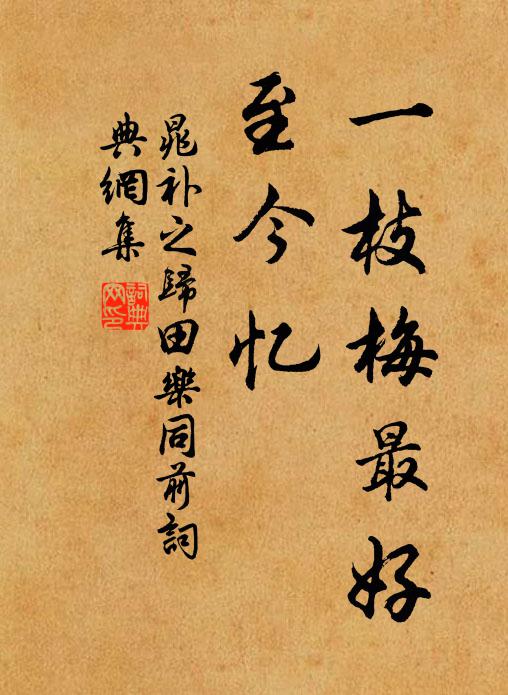 一枝梅最好
至今忆
晁补之歸田樂同前詞
典網集
詞典网印